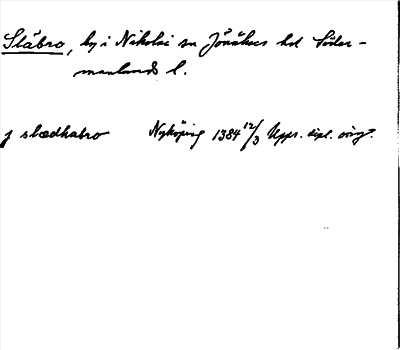 Släbro, by i Nikolai sn Jönåkers hd Söder-
manlands l.
j slædhabro Nyköping 1384 12/3 Upps. dipl. orig.